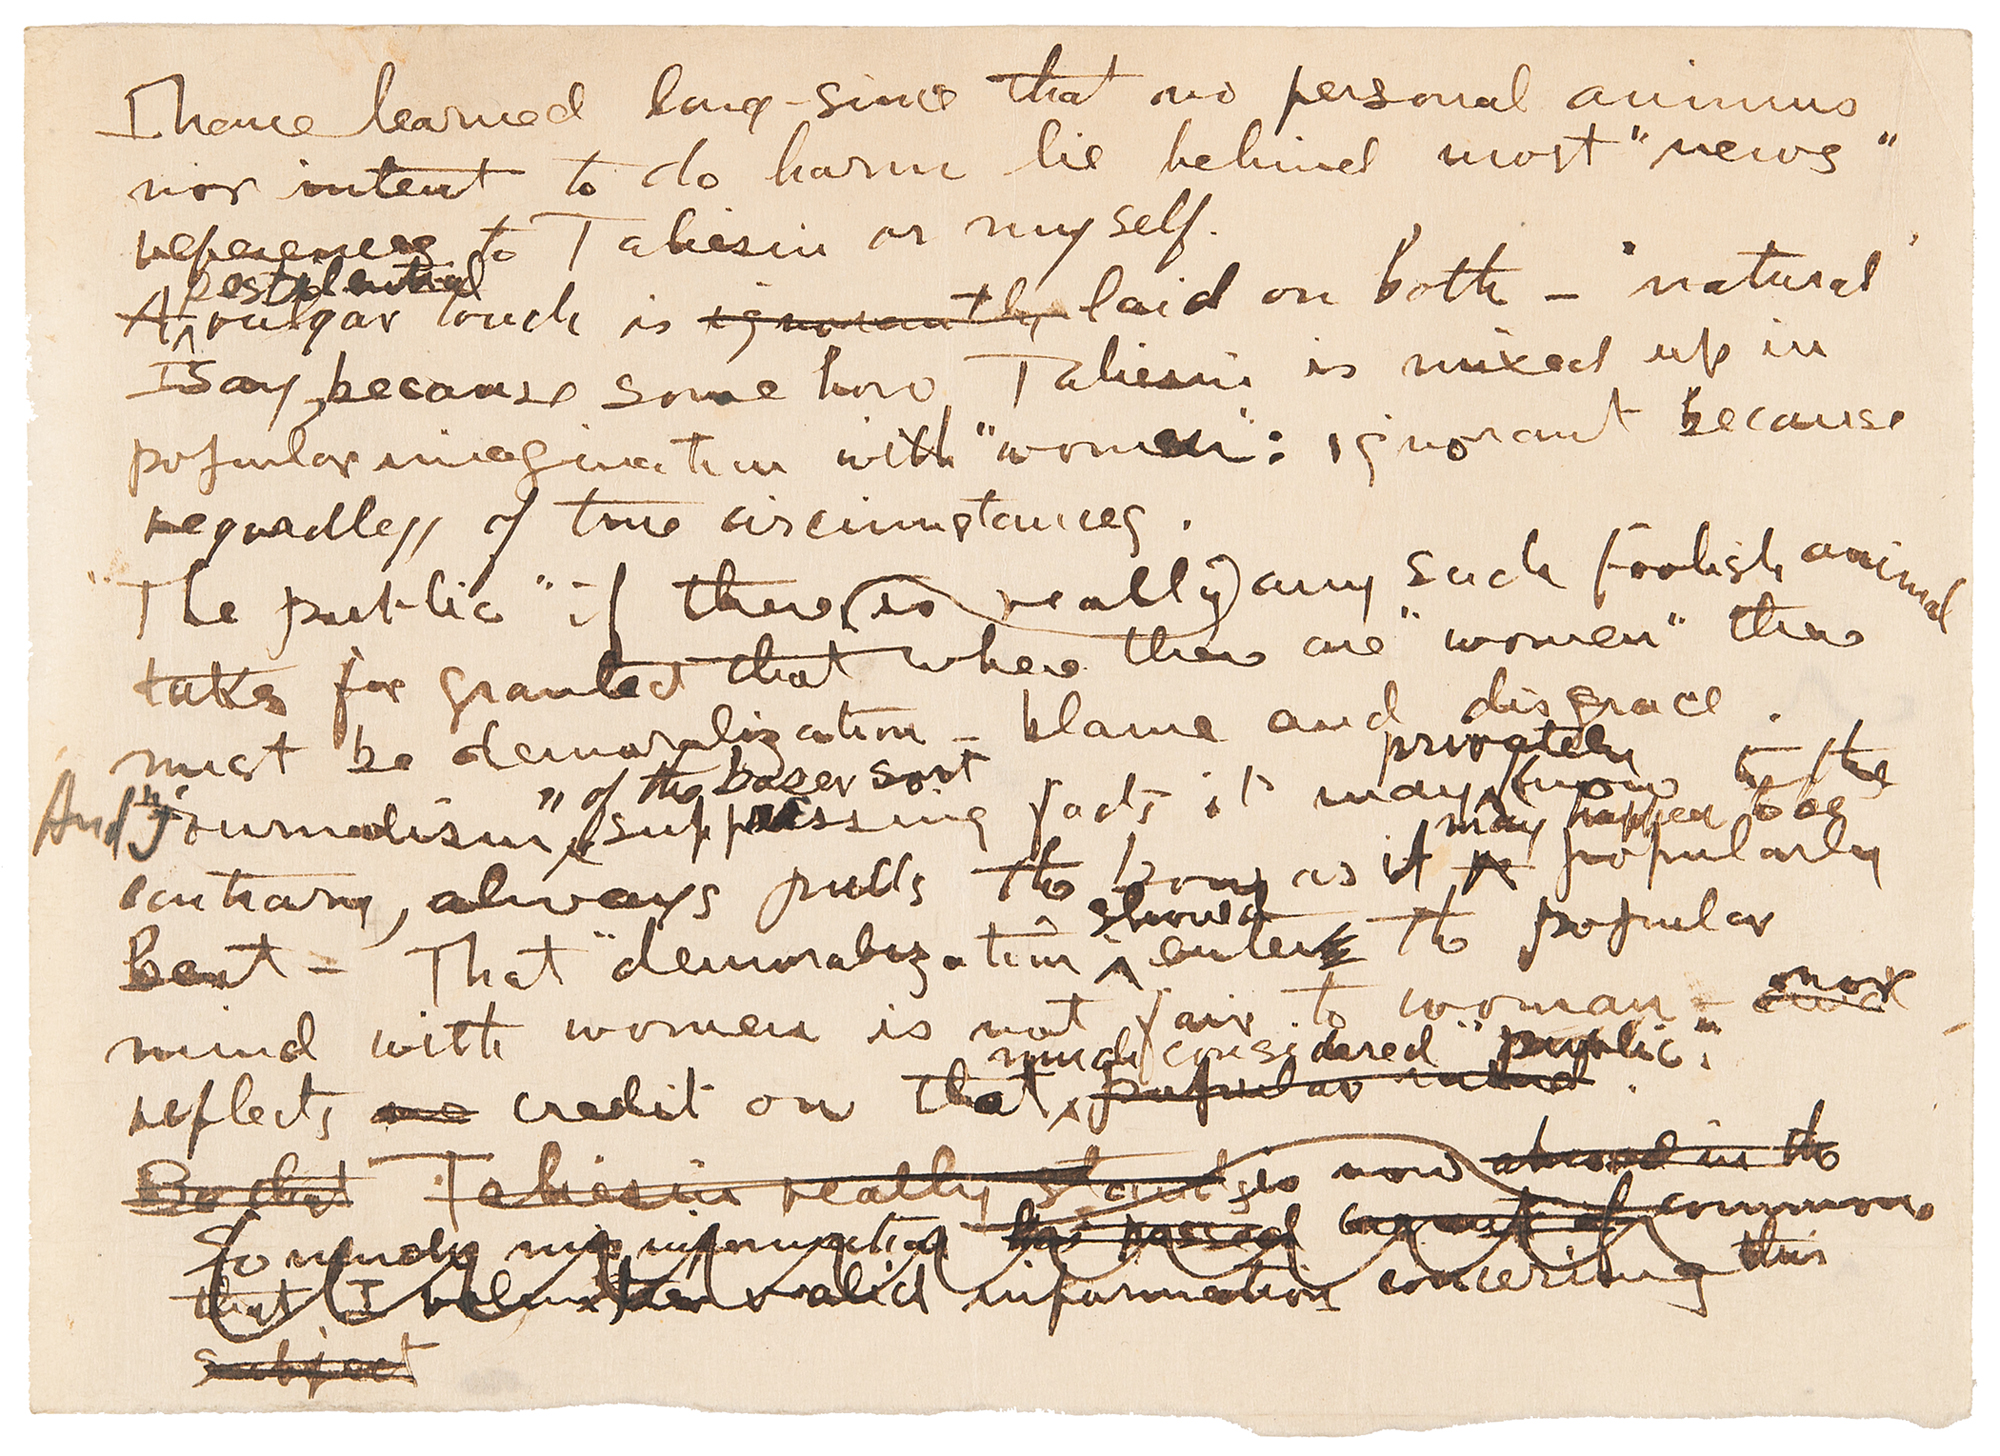 I have learned long-since that no personal animus
nor intent to do harm lie behind most "news"
references to Taliesin or myself.
pestilential
A vulgar touch is ignorantly laid on both – "natural"
I say, because some how Taliesin is mixed up in
popular imagination with "women": ignorant because
regardless of true circumstances.
"The public" if there (is really) any such foolish animal
takes for granted that where there are "women" there
must be demoralization – blame and disgrace.
of the baser sort privately
And "Journalism", suppressing facts it may know to the
may happen to be
contrary, always pulls the bow as it is popularly
Bent – That "demoralization should enter the popular
mind with women is not fair to woman – and
nor
much considered "public".
reflects no credit on that popular mind.
So that Taliesin really stands is now abroad in the
So much misinformation has passed as common
that I volunteer valid information concerning this
subject